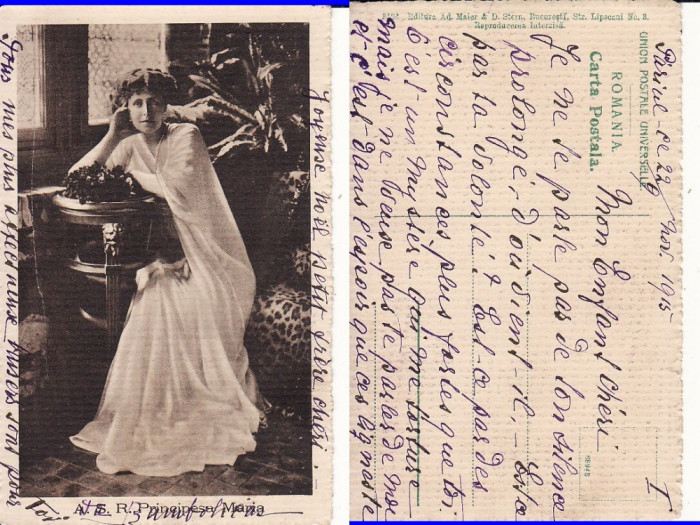 Joyeuse noël petit être chéri !
Tous mes plus vœux sont pour
toi.
A. S. R. Principesa Maria
Editura Ad. Maier & D. Stern, Bucureşti, Str. Lipscani No. 3.
Reproducerea interzisă.
UNION POSTALE UNIVERSELLE
ROMANIA
Carta Postala.
Paris - ce 22 Nov. 1915
I
Mon Enfant chéri
Je ne te parle pas de ton silence
prolongé, d'où vient-il, - Est-ce
par ta volonté ? Est-ce par des
circonstances plus fortes que toi.
C'est un mystère qui me torture
mais je ne veux pas te parler de moi
et c'est dans l'espoir que ces lignes te